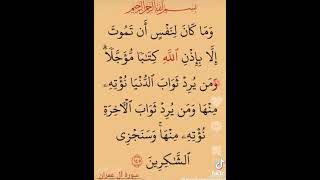 بسم الله الرحمن الرحيم
وَمَا كَانَ لِنَفْسٍ أَن تَمُوتَ
إِلَّا بِإِذْنِ ٱللَّهِ كِتَٰبًا مُّؤَجَّلًا ۗ
وَمَن يُرِدْ ثَوَابَ ٱلدُّنْيَا نُؤْتِهِۦ
مِنْهَا وَمَن يُرِدْ ثَوَابَ ٱلْأٓخِرَةِ
نُؤْتِهِۦ مِنْهَا ۚ وَسَنَجْزِى
ٱلشَّٰكِرِينَ ١٤٥
سورة آل عمران